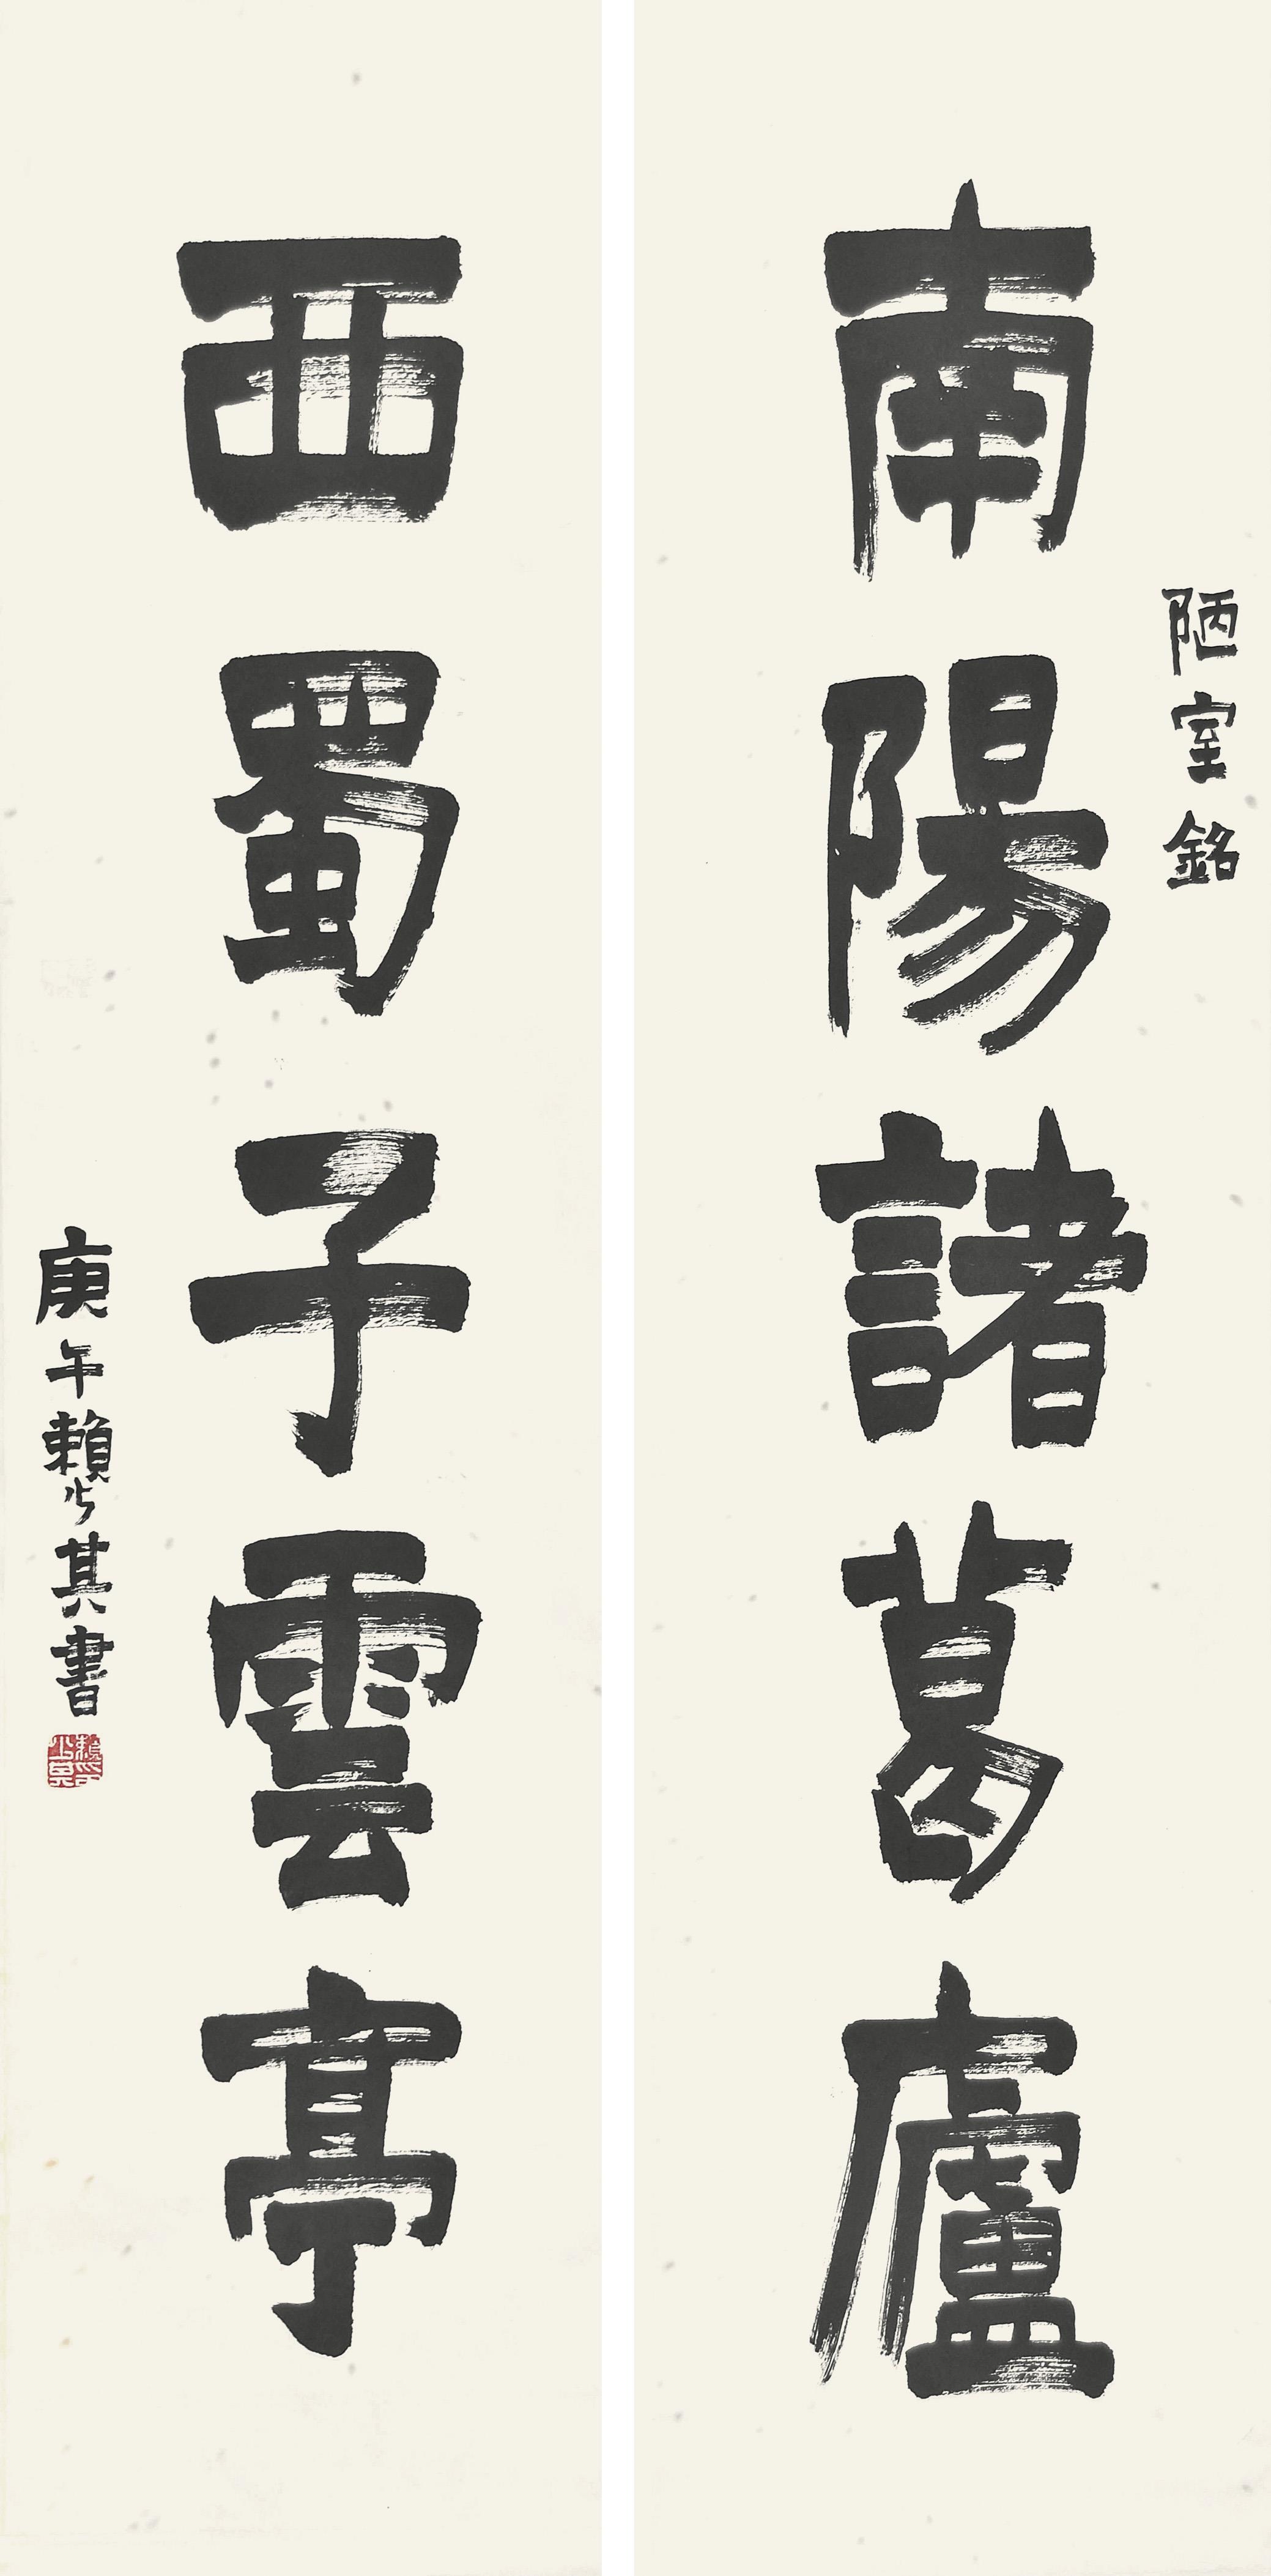 陋室銘
南陽諸葛廬
西蜀子雲亭
庚午賴少其書
賴少其印